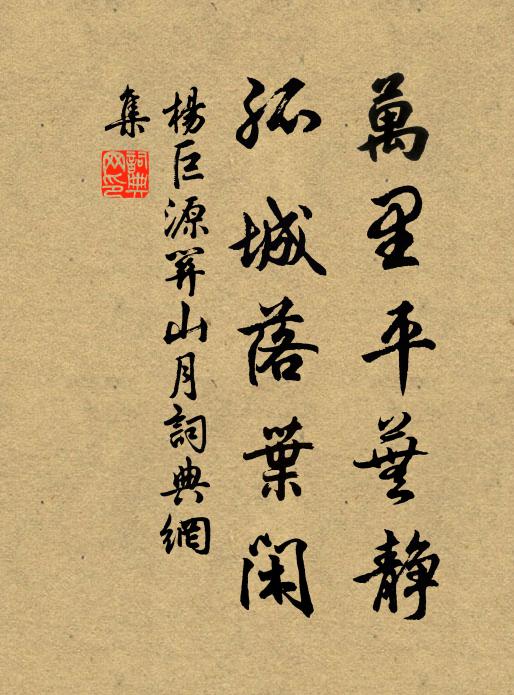 萬里平蕪靜
孤城落葉閑
楊巨源關山月詞典網
集
詞典网印